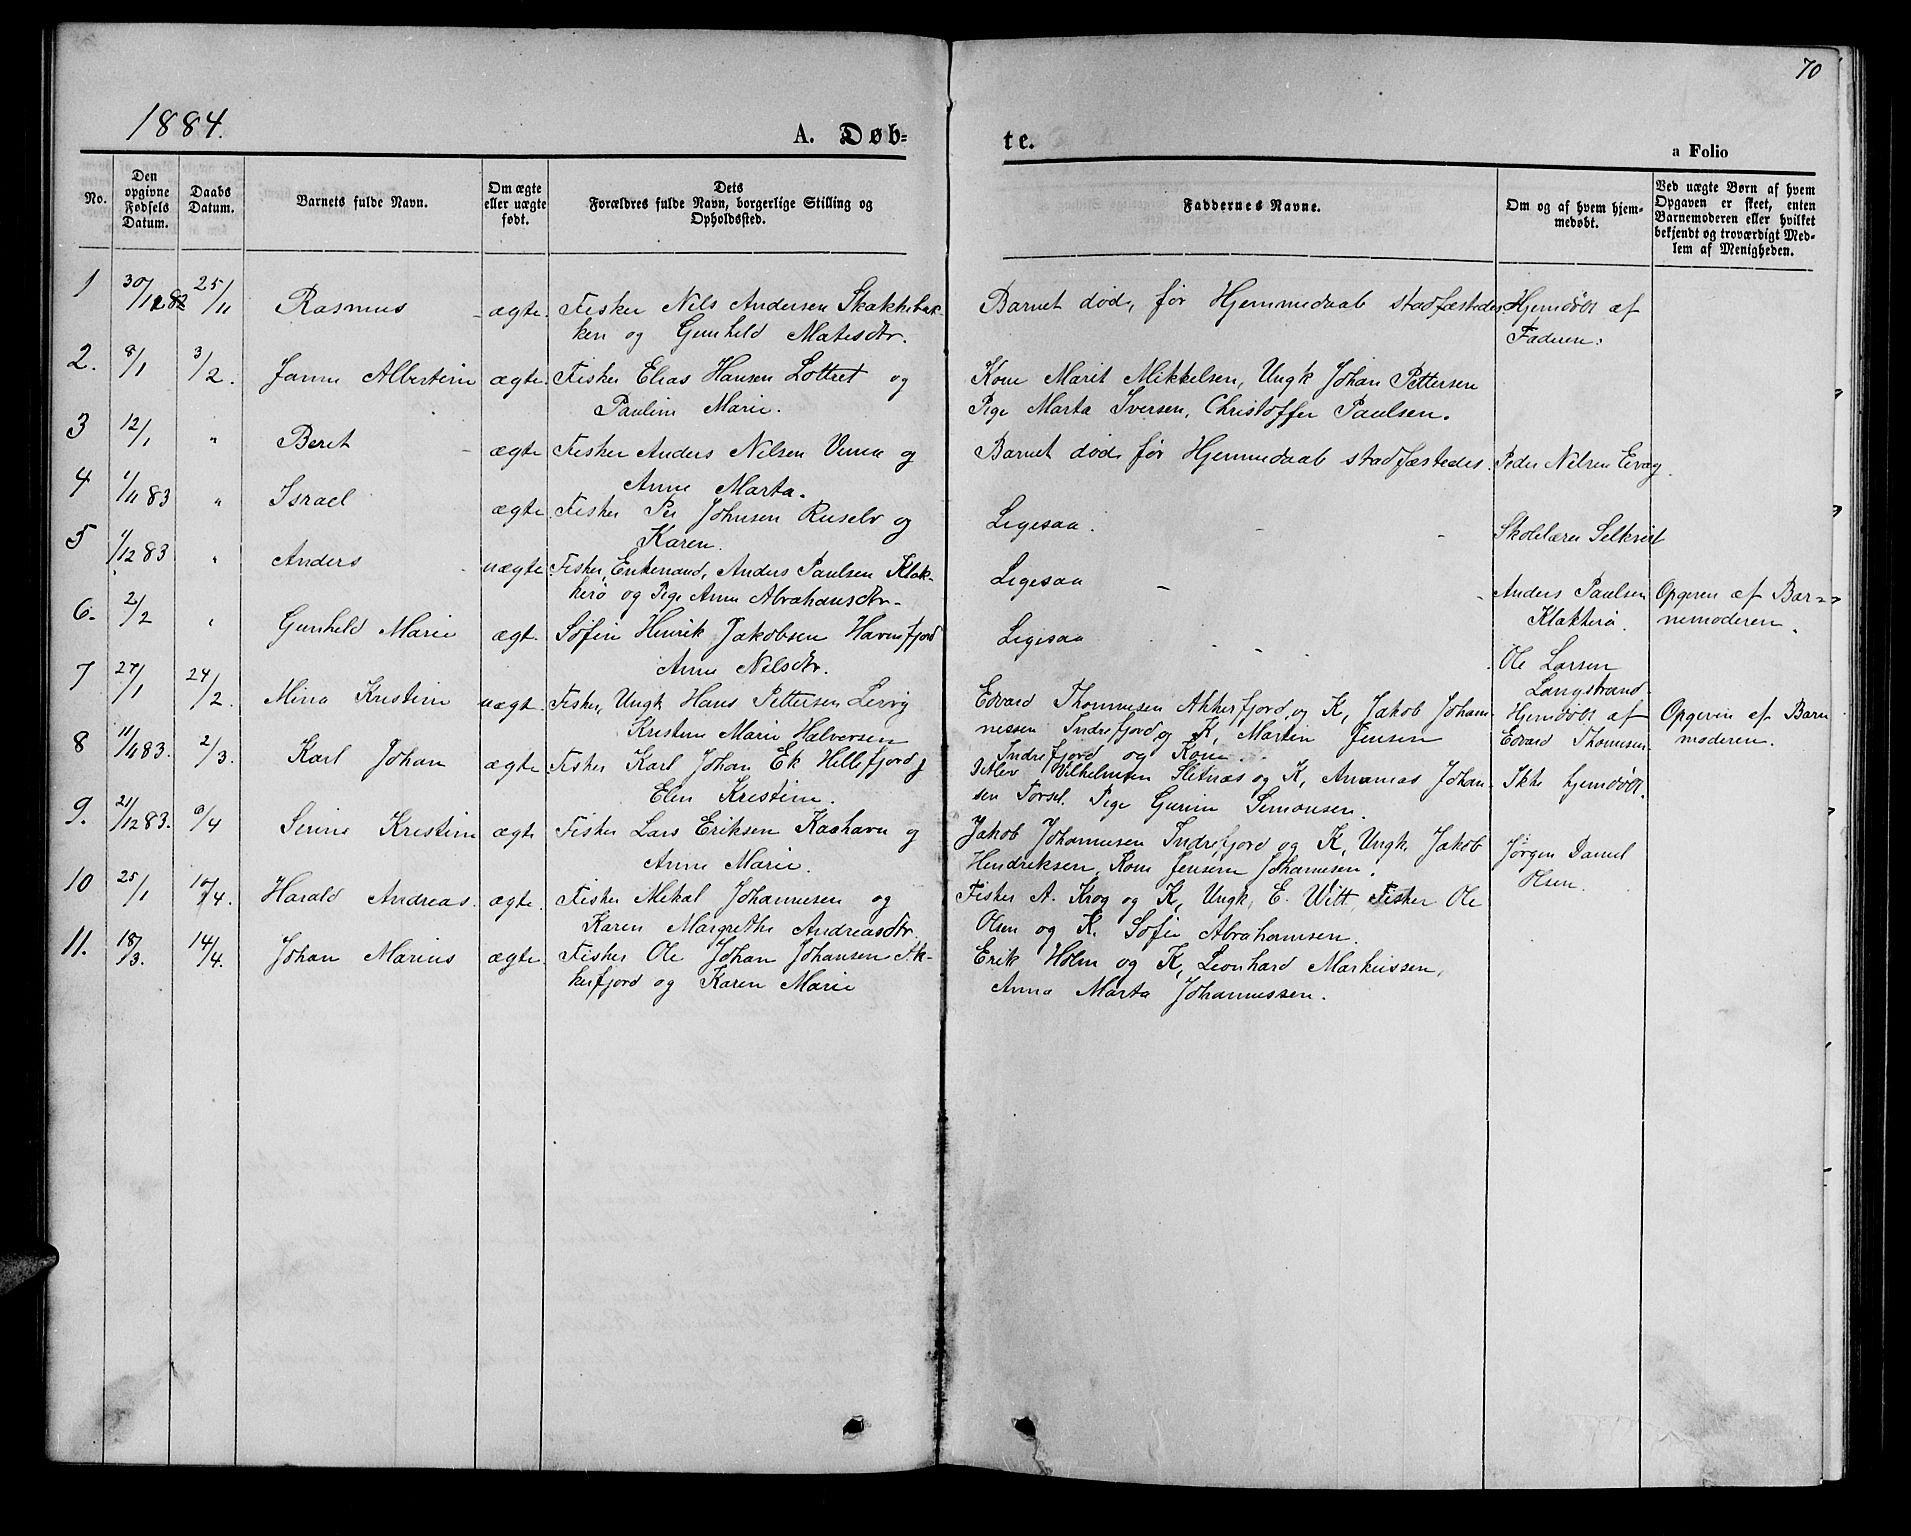 70
1884.
A. Døb=
te.
a Folio
No.
Den
opgivne
Fødsels
Datum.
Daabs
Datum.
Barnets fulde Navn.
Om ægte
eller uægte
født.
Dets
Forældres fulde Navn, borgerlige Stilling og
Opholdssted.
Faddernes Navne.
Om og af hvem hjem-
medøbt.
Ved uægte Børn af hvem
Opgaven er skeet, enten
Barnemoderen eller hvilket
bekjendt og troværdigt Med-
lem af Menigheden.
1 30/12 82 25/11 Rasmus - ægte. Fisker Nils Andersen Skakkebak- Barnet døde, før Hjemmedaab stadfæstedes Hjemdøbt af
ken og Gunhild Matesdtr. Faderen.
2. 8/1 3/2. Janna Albertine ægte. Fisker Elias Hansen Lottret og Kone Marit Mikkelsen, Ungk Johan Pettersen
Pauline Marie. Pige Marta Iversen, Christoffer Paulsen.
3 12/1 " Beret - ægte Fisker Anders Nilsen og Barnet døde før Hjemmedaab stadfæstedes. Peder Nilsen
Anne Marta.
4 1/11 83 " Israel ægte Fisker Per Johnsen og Ligesaa. - - Skolelærer
Karen.
5 1/12 83 " Anders - uægte Fisker, Enkemand, Anders Paulsen Klak- Ligesaa - - Anders Paulsen Opgiven af Bar-
kerø og Pige Anne Abrahamsdtr. Klakkerø. nemoderen.
6. 2/2 " Gunhild Marie ægt. Søfin Henrik Jakobsen Havnefjord Ligesaa . - - . Ole Larsen
Anne Nilsdtr. Langstrand
7 27/1 24/2. Mina Kristine uægt. Fisker, Ungk Hans Pettersen Lervig Edvard Thomesen Akkerfjord, og K, Jakob Johan- Hjemdøbt af Opgiven af Barne
Kristine Marie Halversen nessen Indrefjord og K, Martin Jensen Edvard Thomesen. moderen.
Indrefjord og Kone.
8 11/11 83. 2/3. Karl Johan ægte Fisker Karl Johan Ek Hillefjord, Detlev Vilhelmsen Sletnæs og K, Ananias Johan- Ikke hjemdøbt.
Elen Kristine. sen Torsel. Pige Gurine Simonsen.
9. 21/12 83. 6/4 Sinne Kristine ægte Fisker Lars Eriksen Kaahavn og Jakob Johannesen Indrefjord og K, Ungk. Jakob Jørgen Daniel
Anne Marie. Hendriksen, Kone Jensine Johannesen. Olsen.
10 25/1 10/4. Harald Andreas. ægte. Fisker Mikal Johannesen og Fisker A. Krog og K, Ungk, E. Witt, Fisker Ole
Karen Margrethe Andreasdtr. Olsen og K. Sofie Abrahamsen.
11. 18/3. 14/4. Johan Marius ægte. Fisker Ole Johan Johansen Ak- Erik Holm og K, Leonhard Markussen,
kerfjord og Karen Marie Anna Marta Johannessen.